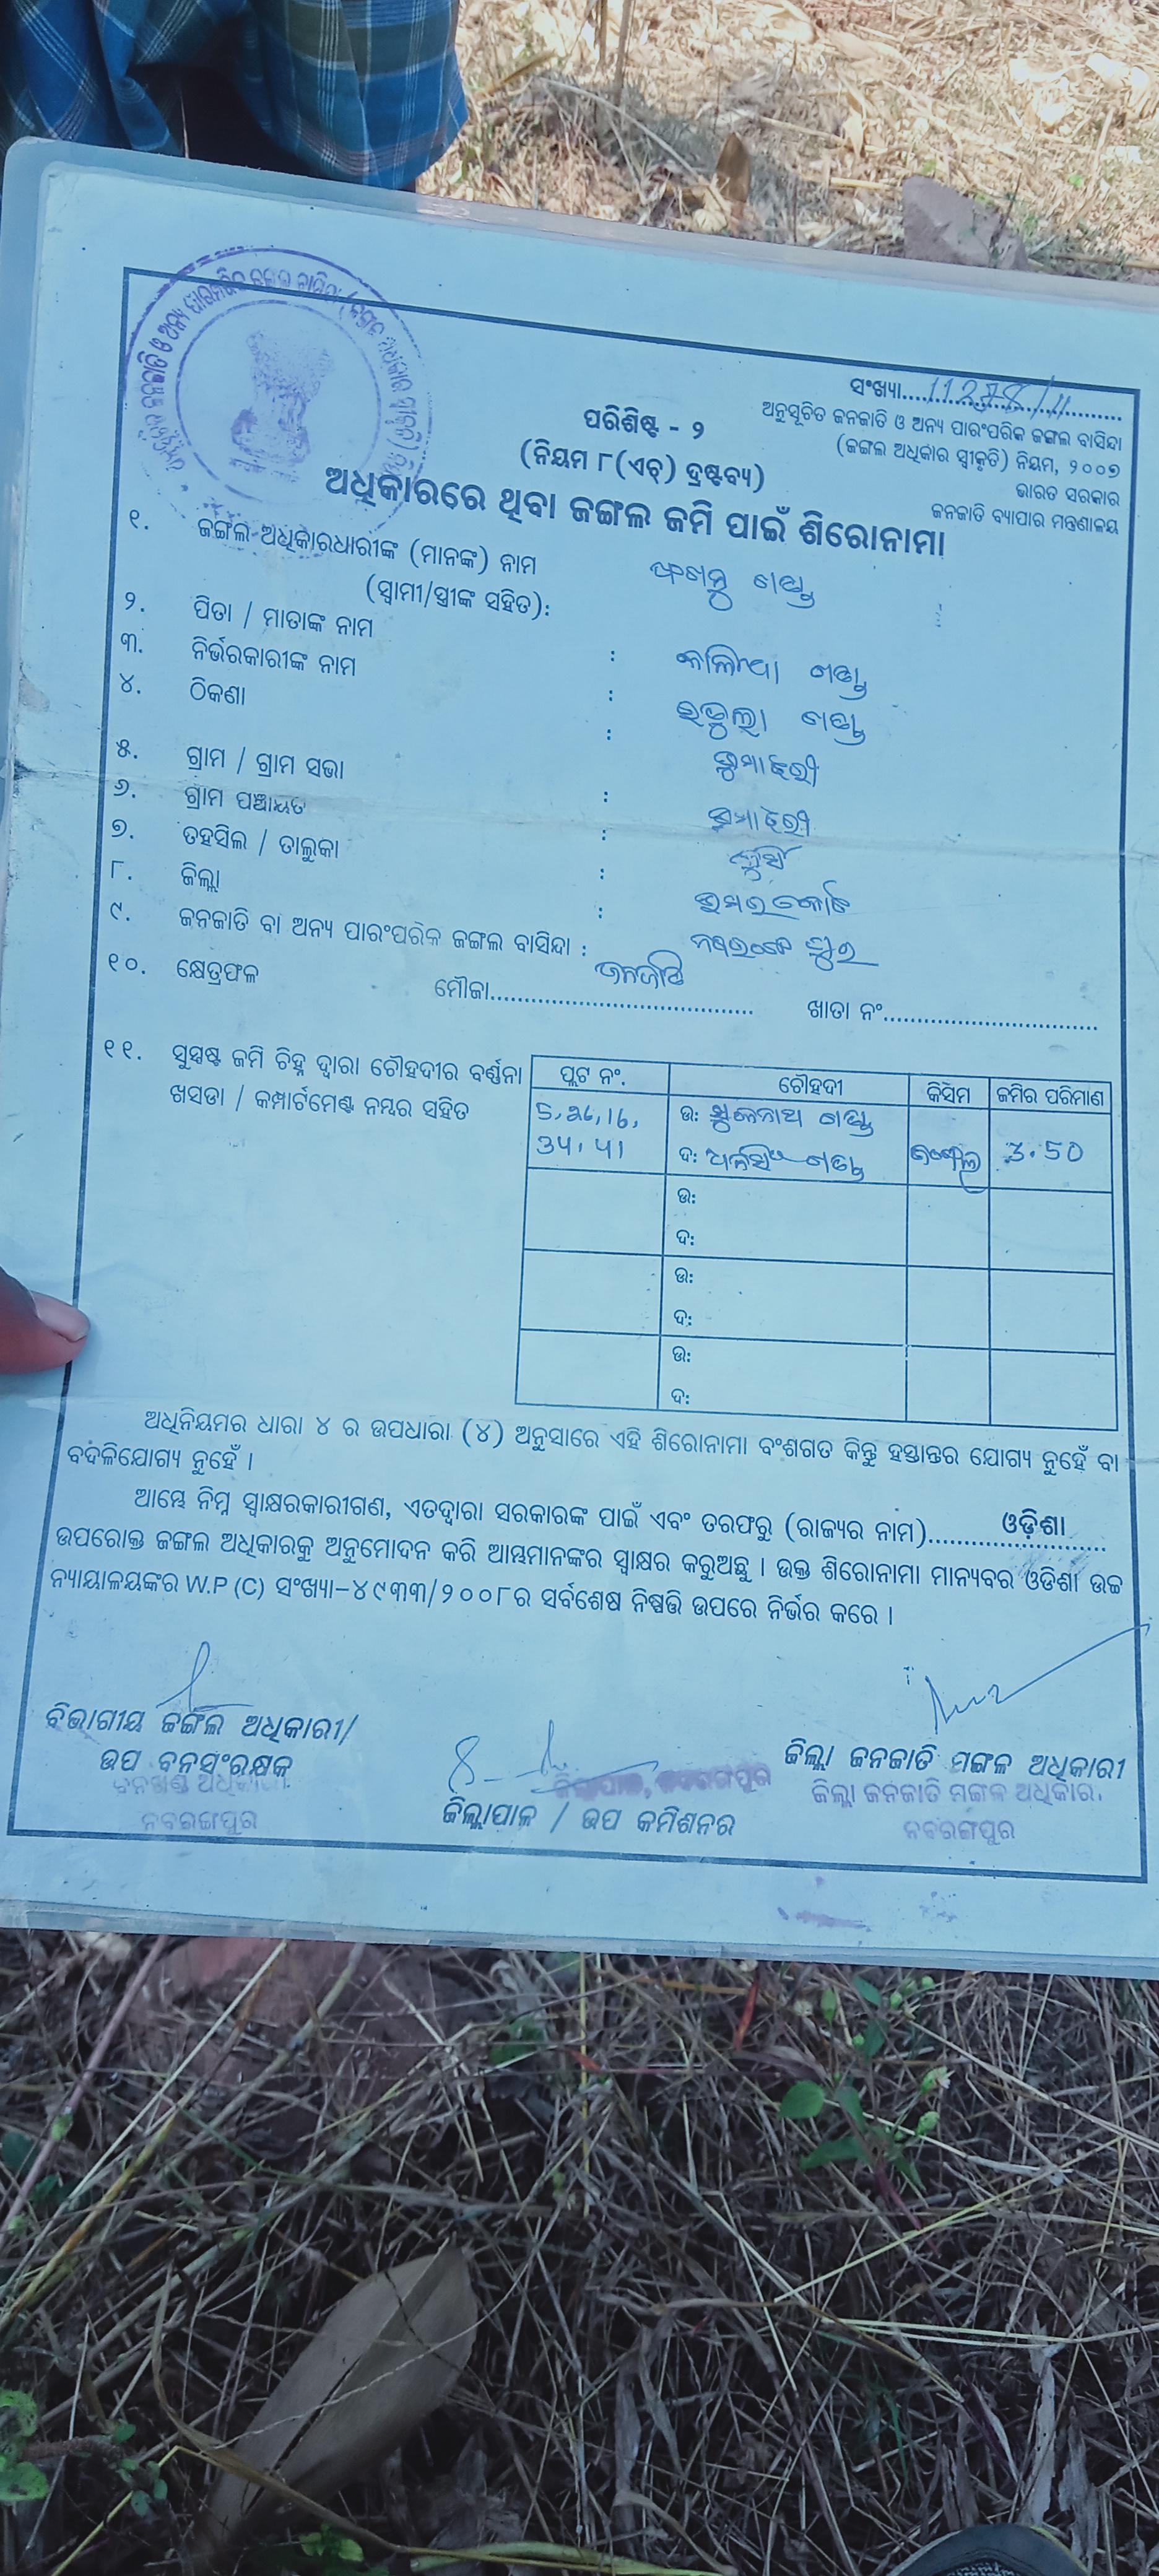 ସଂଖ୍ୟା....11278/11
ଅନୁସୂଚିତ ଜନଜାତି ଓ ଅନ୍ୟ ପାରଂପରିକ ଜଙ୍ଗଲ ବାସିନ୍ଦା
(ଜଙ୍ଗଲ ଅଧିକାର ସ୍ୱୀକୃତି) ନିୟମ, ୨୦୦୭
ଭାରତ ସରକାର
ଜନଜାତି ବ୍ୟାପାର ମନ୍ତ୍ରଣାଳୟ
ପରିଶିଷ୍ଟ - ୨
(ନିୟମ ୮(ଏଚ୍) ଦ୍ରଷ୍ଟବ୍ୟ)
ଅଧିକାରରେ ଥିବା ଜଙ୍ଗଲ ଜମି ପାଇଁ ଶିରୋନାମା
୧. ଜଙ୍ଗଲ ଅଧିକାରଧାରୀଙ୍କ (ମାନଙ୍କ) ନାମ
(ସ୍ୱାମୀ/ସ୍ତ୍ରୀଙ୍କ ସହିତ):
୨. ପିତା / ମାତାଙ୍କ ନାମ : କଳିଆ ଗଣ୍ଡ
୩. ନିର୍ଭରକାରୀଙ୍କ ନାମ : ଗଣ୍ଡ
୪. ଠିକଣା :
୫. ଗ୍ରାମ / ଗ୍ରାମ ସଭା :
୬. ଗ୍ରାମ ପଞ୍ଚାୟତ :
୭. ତହସିଲ / ତାଲୁକା :
୮. ଜିଲ୍ଲା :
୯. ଜନଜାତି ବା ଅନ୍ୟ ପାରଂପରିକ ଜଙ୍ଗଲ ବାସିନ୍ଦା : ଜନଜାତି
୧୦. କ୍ଷେତ୍ରଫଳ ମୌଜା.................... ଖାତା ନଂ....................
୧୧. ସୁସ୍ପଷ୍ଟ ଜମି ଚିହ୍ନ ଦ୍ୱାରା ଚୌହଦୀର ବର୍ଣ୍ଣନା
ଖସଡା / କମ୍ପାର୍ଟମେଣ୍ଟ ନମ୍ବର ସହିତ
ପ୍ଲଟ ନଂ. ଚୌହଦୀ କିସିମ ଜମିର ପରିମାଣ
5, 26, 16, ଉ: ଗଣ୍ଡ
ଦ: ଗଣ୍ଡ ଜଙ୍ଗଲ 3.50
ଉ:
ଦ:
ଉ:
ଦ:
ଉ:
ଦ:
ଅଧିନିୟମର ଧାରା ୪ ର ଉପଧାରା (୪) ଅନୁସାରେ ଏହି ଶିରୋନାମା ବଂଶଗତ କିନ୍ତୁ ହସ୍ତାନ୍ତର ଯୋଗ୍ୟ ନୁହେଁ ବା
ବଦଳିଯୋଗ୍ୟ ନୁହେଁ ।
ଆମ୍ଭେ ନିମ୍ନ ସ୍ୱାକ୍ଷରକାରୀଗଣ, ଏତଦ୍ୱାରା ସରକାରଙ୍କ ପାଇଁ ଏବଂ ତରଫରୁ (ରାଜ୍ୟର ନାମ)......ଓଡ଼ିଶା......
ଉପରୋକ୍ତ ଜଙ୍ଗଲ ଅଧିକାରକୁ ଅନୁମୋଦନ କରି ଆମ୍ଭମାନଙ୍କର ସ୍ୱାକ୍ଷର କରୁଅଛୁ । ଉକ୍ତ ଶିରୋନାମା ମାନ୍ୟବର ଓଡିଶା ଉଚ୍ଚ
ନ୍ୟାୟାଳୟଙ୍କର W.P (C) ସଂଖ୍ୟା-୪୯୩୩/୨୦୦୮ର ସର୍ବଶେଷ ନିଷ୍ପତ୍ତି ଉପରେ ନିର୍ଭର କରେ ।
ବିଭାଗୀୟ ଜଙ୍ଗଲ ଅଧିକାରୀ/
ଉପ ବନସଂରକ୍ଷକ
ବନଖଣ୍ଡ ଅଧିକାରୀ
ନବରଙ୍ଗପୁର
ଜିଲ୍ଲାପାଳ, ନବରଙ୍ଗପୁର
ଜିଲ୍ଲାପାଳ / ଉପ କମିଶନର
ଜିଲ୍ଲା ଜନଜାତି ମଙ୍ଗଳ ଅଧିକାରୀ
ଜିଲ୍ଲା ଜନଜାତି ମଙ୍ଗଳ ଅଧିକାରୀ
ନବରଙ୍ଗପୁର